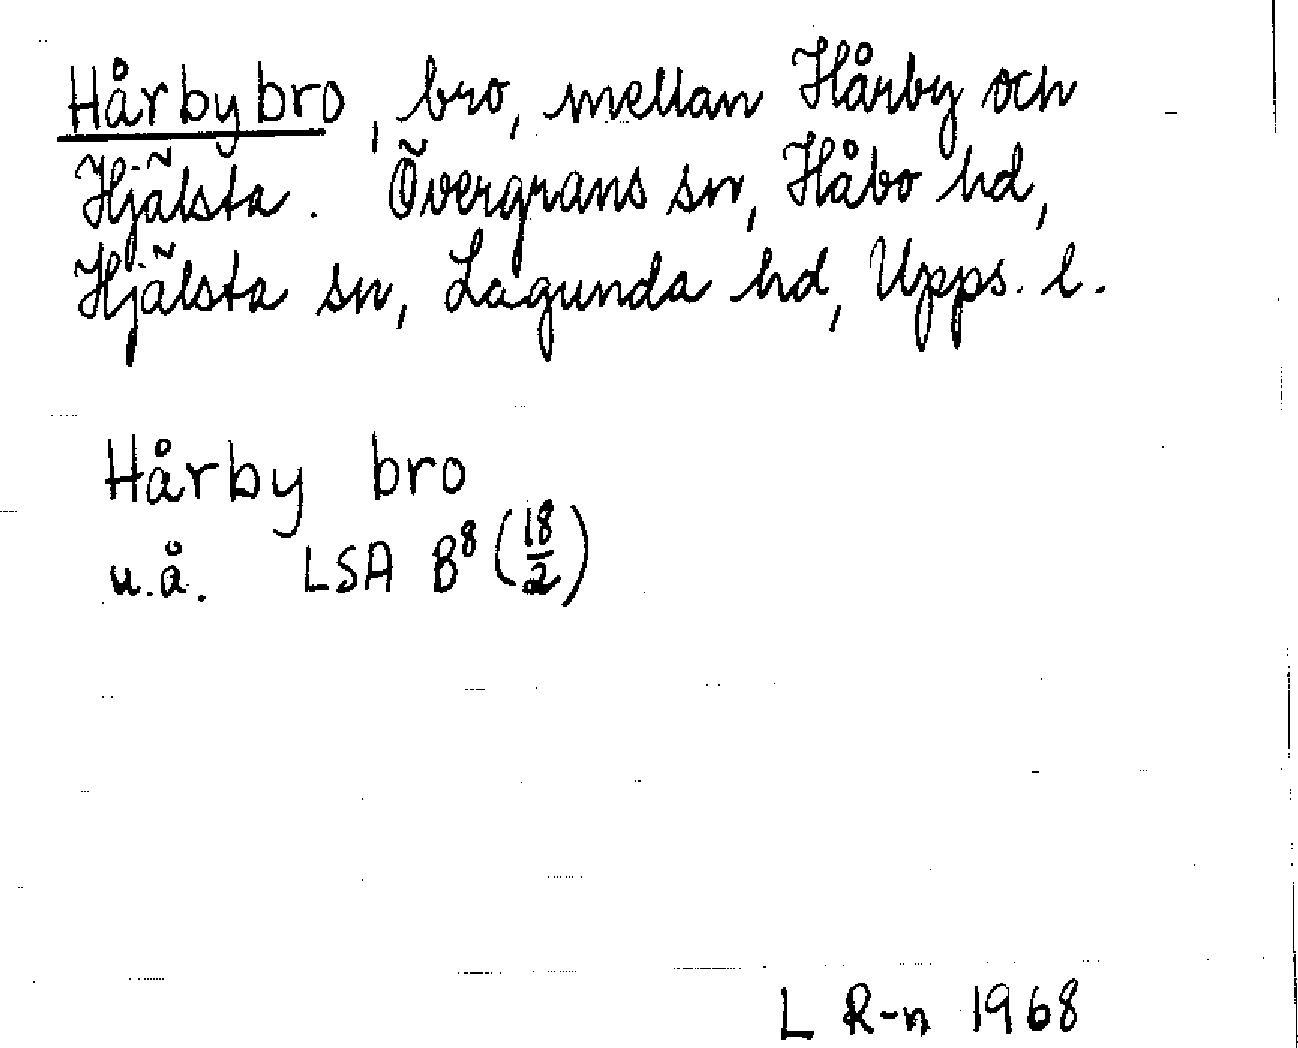 Hårbybro, bro, mellan Hårby och
Hjälsta. Övergrans sn, Håbo hd,
Hjälsta sn, Lagunda hd, Upps. l.
Hårby bro
u.å. LSA B⁸ (18/2)
L R-n 1968